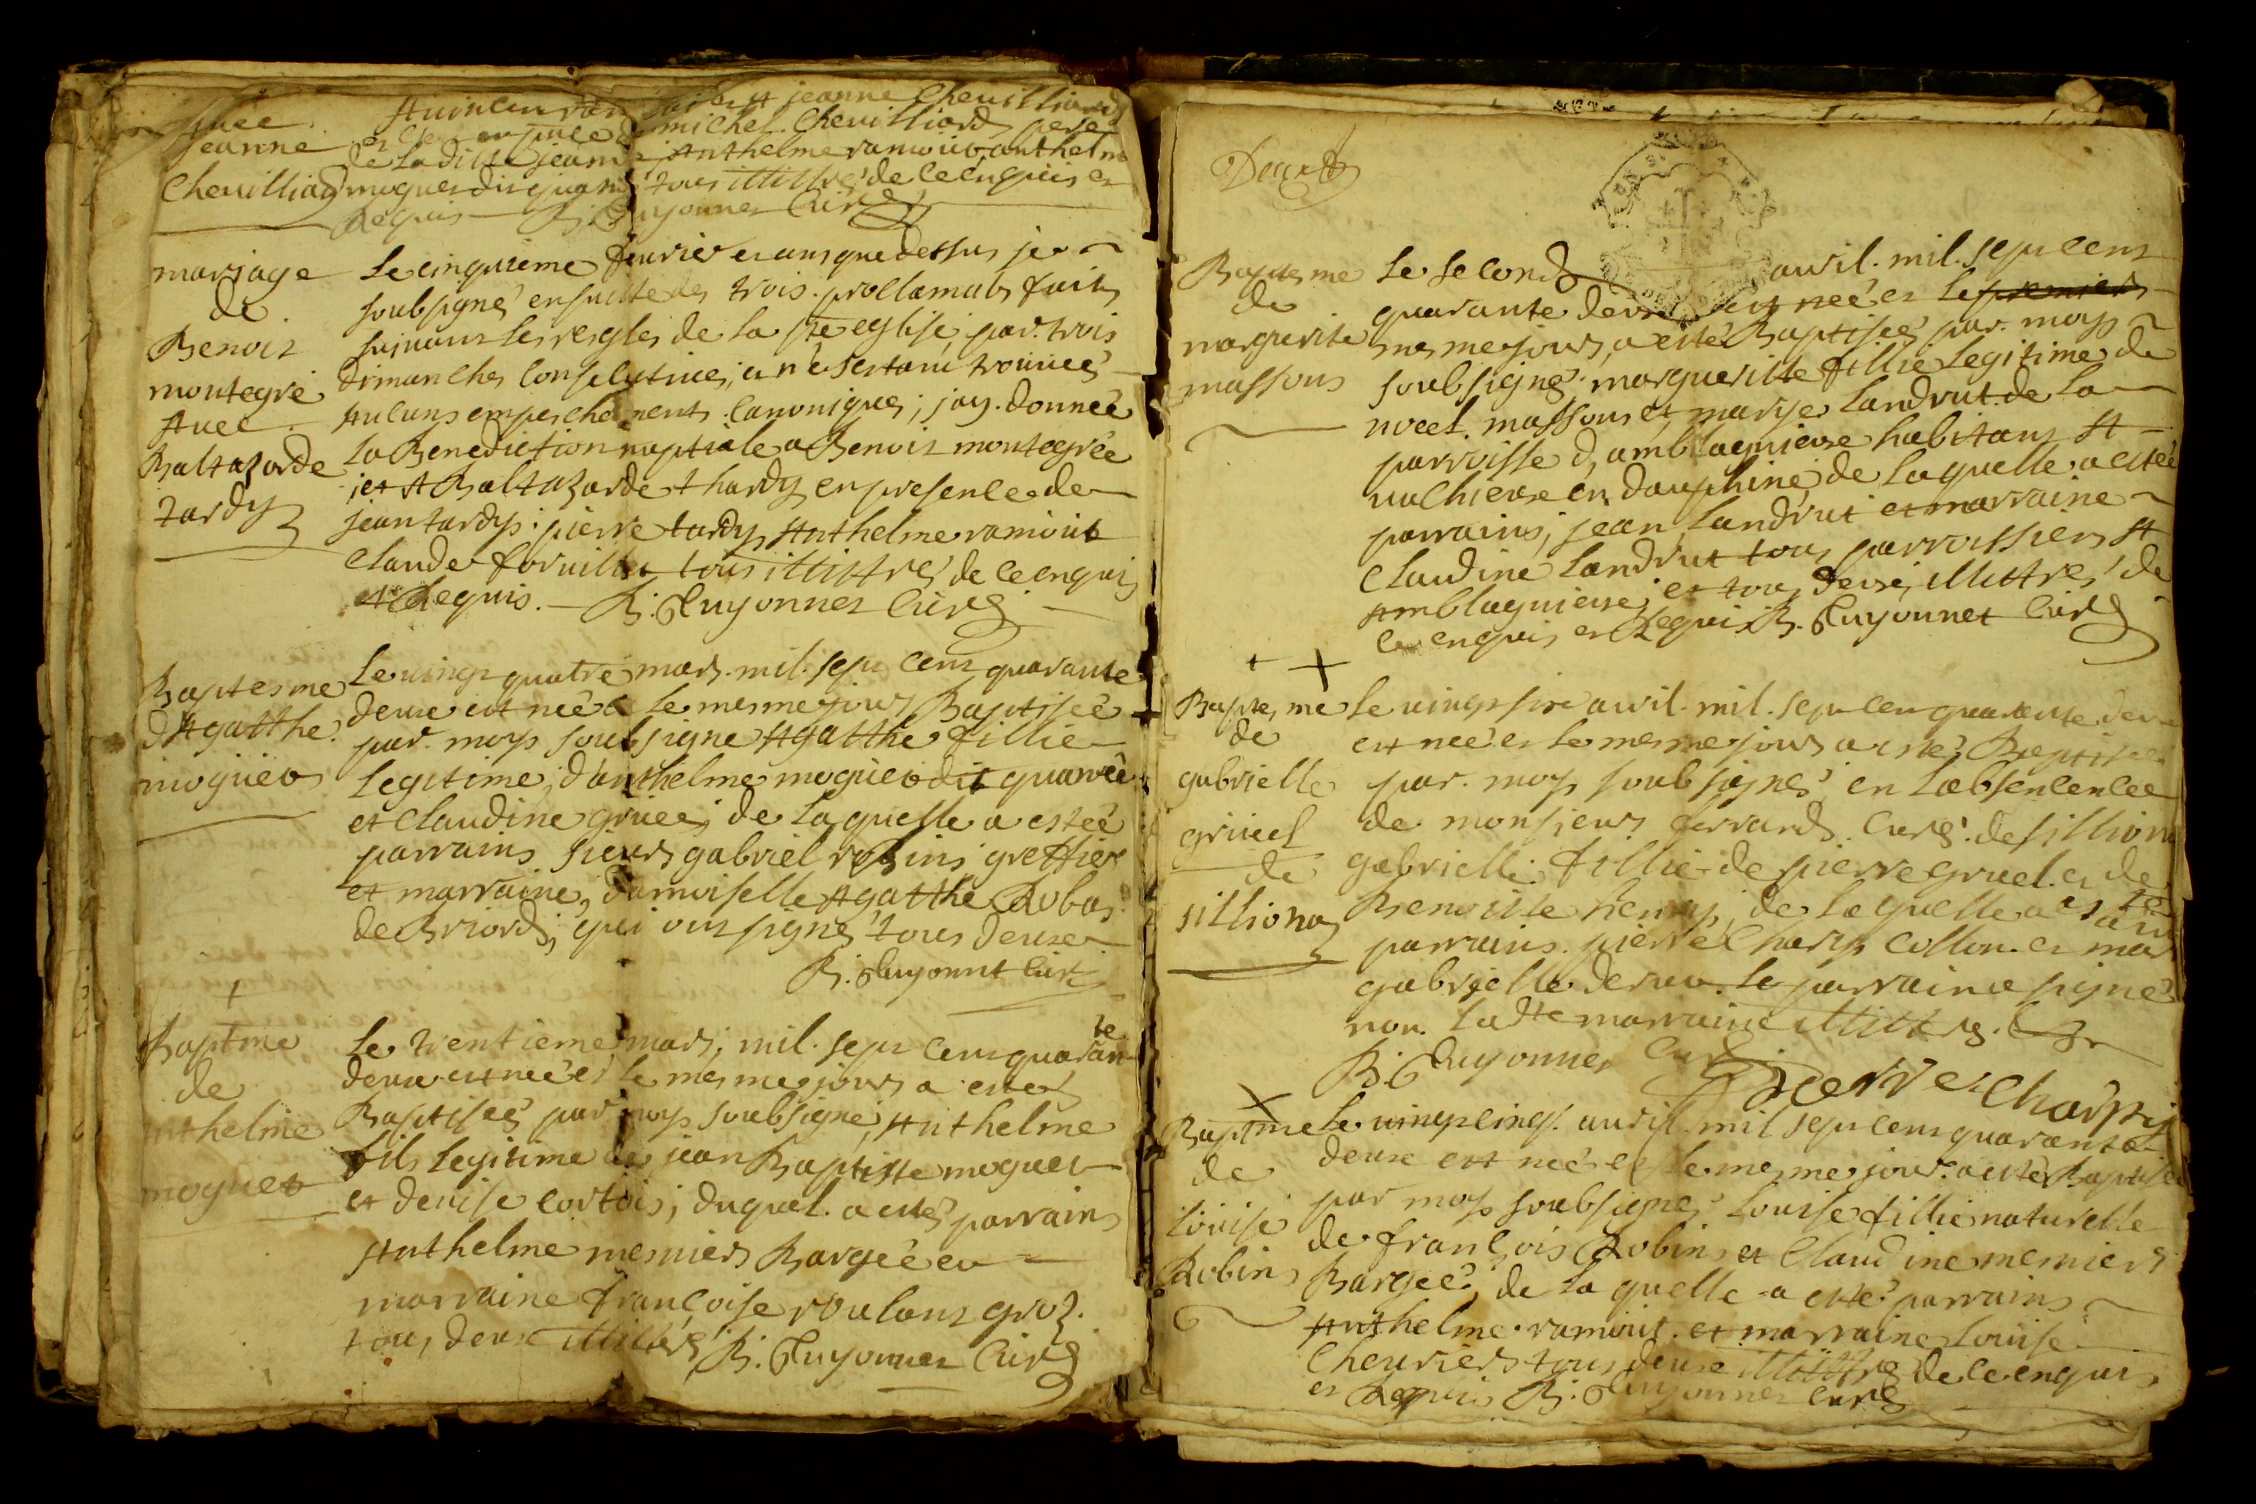 Avec
Jeanne
Chevilliard
et jeanne Chevilliard
michel Chevilliard pere
de la dite jeanne Anthelme ramout anthelme
moguet dit tous illittrés de ce enquis et
Requis R. Guyonnet Curé
mariage
de
Benoit
montegre
Avec
Baltazarde
tardy
Le cinquieme fevrier et ans que dessus je
soubsigné ensuitte des trois proclamats faits
suivant les regles de la ste eglise par trois
dimanches consecutives, et ne sertant trouvée
Aucuns empeschements canoniques, jay donnée
la Benediction nuptiale a Benoit montegrée
et A Baltazarde thardy en presence de
jean tardy pierre tardy Anthelme ramout
Claude tous illittrés de ce enquis
et Requis. R. Guyonnet Curé
Baptesme
d'Agatthe
moguet
Le vingt quatre mars mil sept cent quarante
deux est née et le mesme jour Baptisée
par moy soubsigné Agatthe fillie
Legitime d'anthelme moguet dit quarré
et Claudine gruée, de laquelle a estée
parrains sieur gabriel robins greffier
et marraine, damoiselle Agatthe Robas
de Briord, qui ont signé tous deux
R. Guyonnet Curé
Baptme
de
Anthelme
moguet
Le trentieme mars, mil sept cent quarante
deux est née et le mesme jour a esté
Baptisée par moy soubsigné, Anthelme
fils Legitime de jean Baptiste moguet
et denise cortois, duquel a esté parrains
Anthelme mesnier Bargée et
marraine françoise roulant groz
tous deux illittrés R. Guyonnet Curé
Baptesme
de
marguerite
massons
Le second avril mil sept cent
quarante deux est née et le premier
mesme jour, a esté Baptisée par moy
soubsigné marguerite fillie Legitime de
noeel massons et marye Landrut de la
parroisse d'amblagnieux habitant A
en dauphiné de laquelle a estée
parrains, jean Landrut et marraine
Claudine Landrut tous parroissiens A
Amblagnieux, et tous deux illittrés de
ce enquis et Requis R. Guyonnet Curé
Baptesme
de
gabrielle
gruel
de
sillionas
Le vingt six avril mil sept cent quarante deux
est née et le mesme jour a esté Baptisée
par moy soubsigné en l'absencencee
de monsieur ferrand Curé de sillion
gabrielle fillie de pierre gruel et de
Benoitte henry, de laquelle a esté
parrains pierre Charpy Collon et mar
gabrielle le parrain a signé
non Ladte marraine illittrés
R. Guyonnet Curé
Pierre Charpy
Baptme
de
Louise
Robins
Le vingt cinq avril mil sept cent quarante
deux est née et le mesme jour a esté Baptisée
par moy soubsigné Louise fillie naturelle
de françois Robins et Claudine mesnier
Bargée, de laquelle a esté parrains
Anthelme ramout et marraine Louise
Chevrier tous deux illittrés de ce enquis
et Requis R. Guyonnet Curé